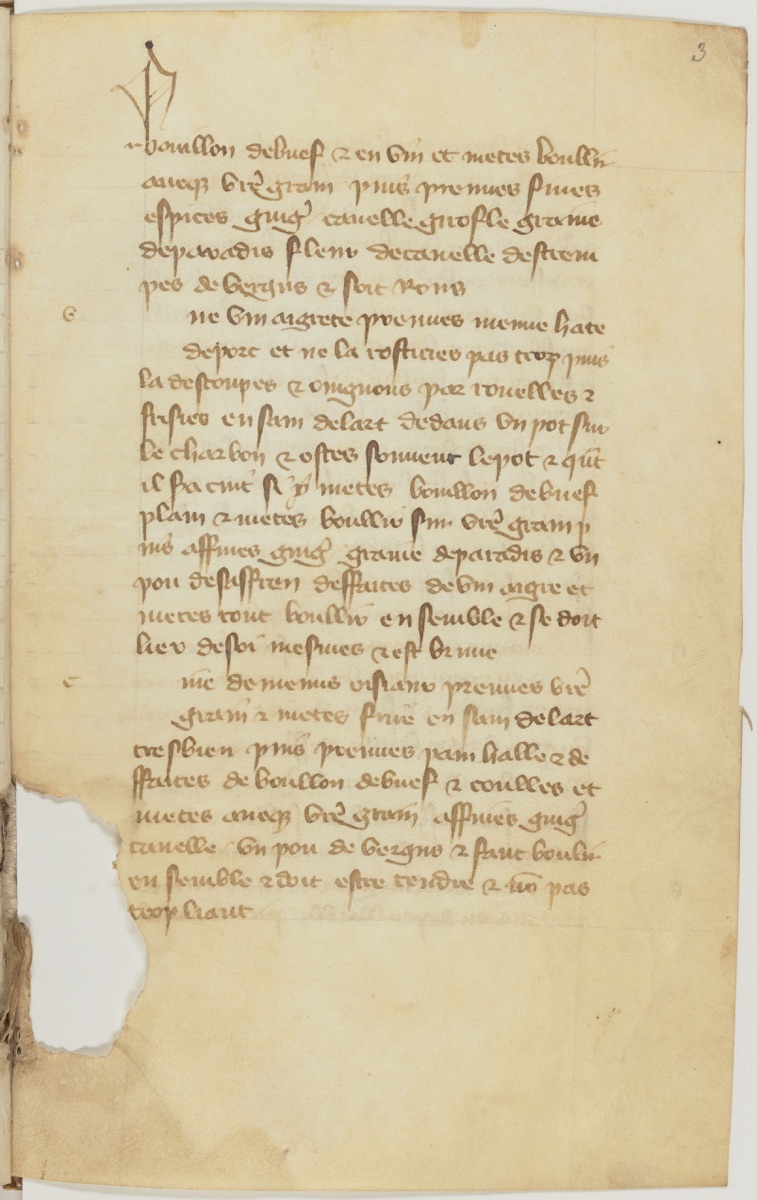 3
bouillon de buef & en vin et metes boullir
aueqz vre grain puis prennes fines
espices ging canelle girofle graine
de paradis fleur de canelle destrem
pes de vergus & soit Rous
ne vin aigrete prennes menue haste
de porc et ne la rosticies pas trop puis
la descoupes & oingnons par rouelles &
frisies en sain de lart dedans vn pot sur
le charbon & ostes souuent le pot & qñt
il sa cuit si y metes bouillon de buef
plain & metes boullir sur vre grain p
uis affines ging graine de paradis & vn
pou de saffren deffaites de vin aigre et
metes tout boullir en semble & se doit
lier de soi mesmes & est brune
me de menus oisiaux prennes vre
grain & metes frire en sain de lart
tresbien puis prennes pain halle & de
ffaites de boullon de buef & coulles et
metes aueqz vre grain affines ging
canelle vn pou de vergus & faut boulir
en semble & doit estre tendre & nõ pas
trop liant